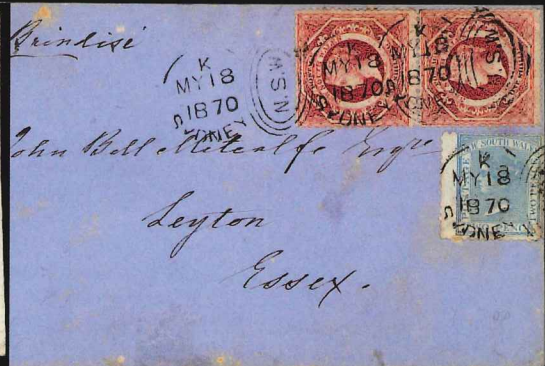 Brindisi
K
MY 18
1870
SYDNEY
N.S.W
K
MY 18
1870
SYDNEY
K
MY 18
1870
SYDNEY
N.S.W
SOUTH WALES
K
MY 18
1870
SYDNEY
John Bell Metcalfe Esqre
Leyton
Essex.